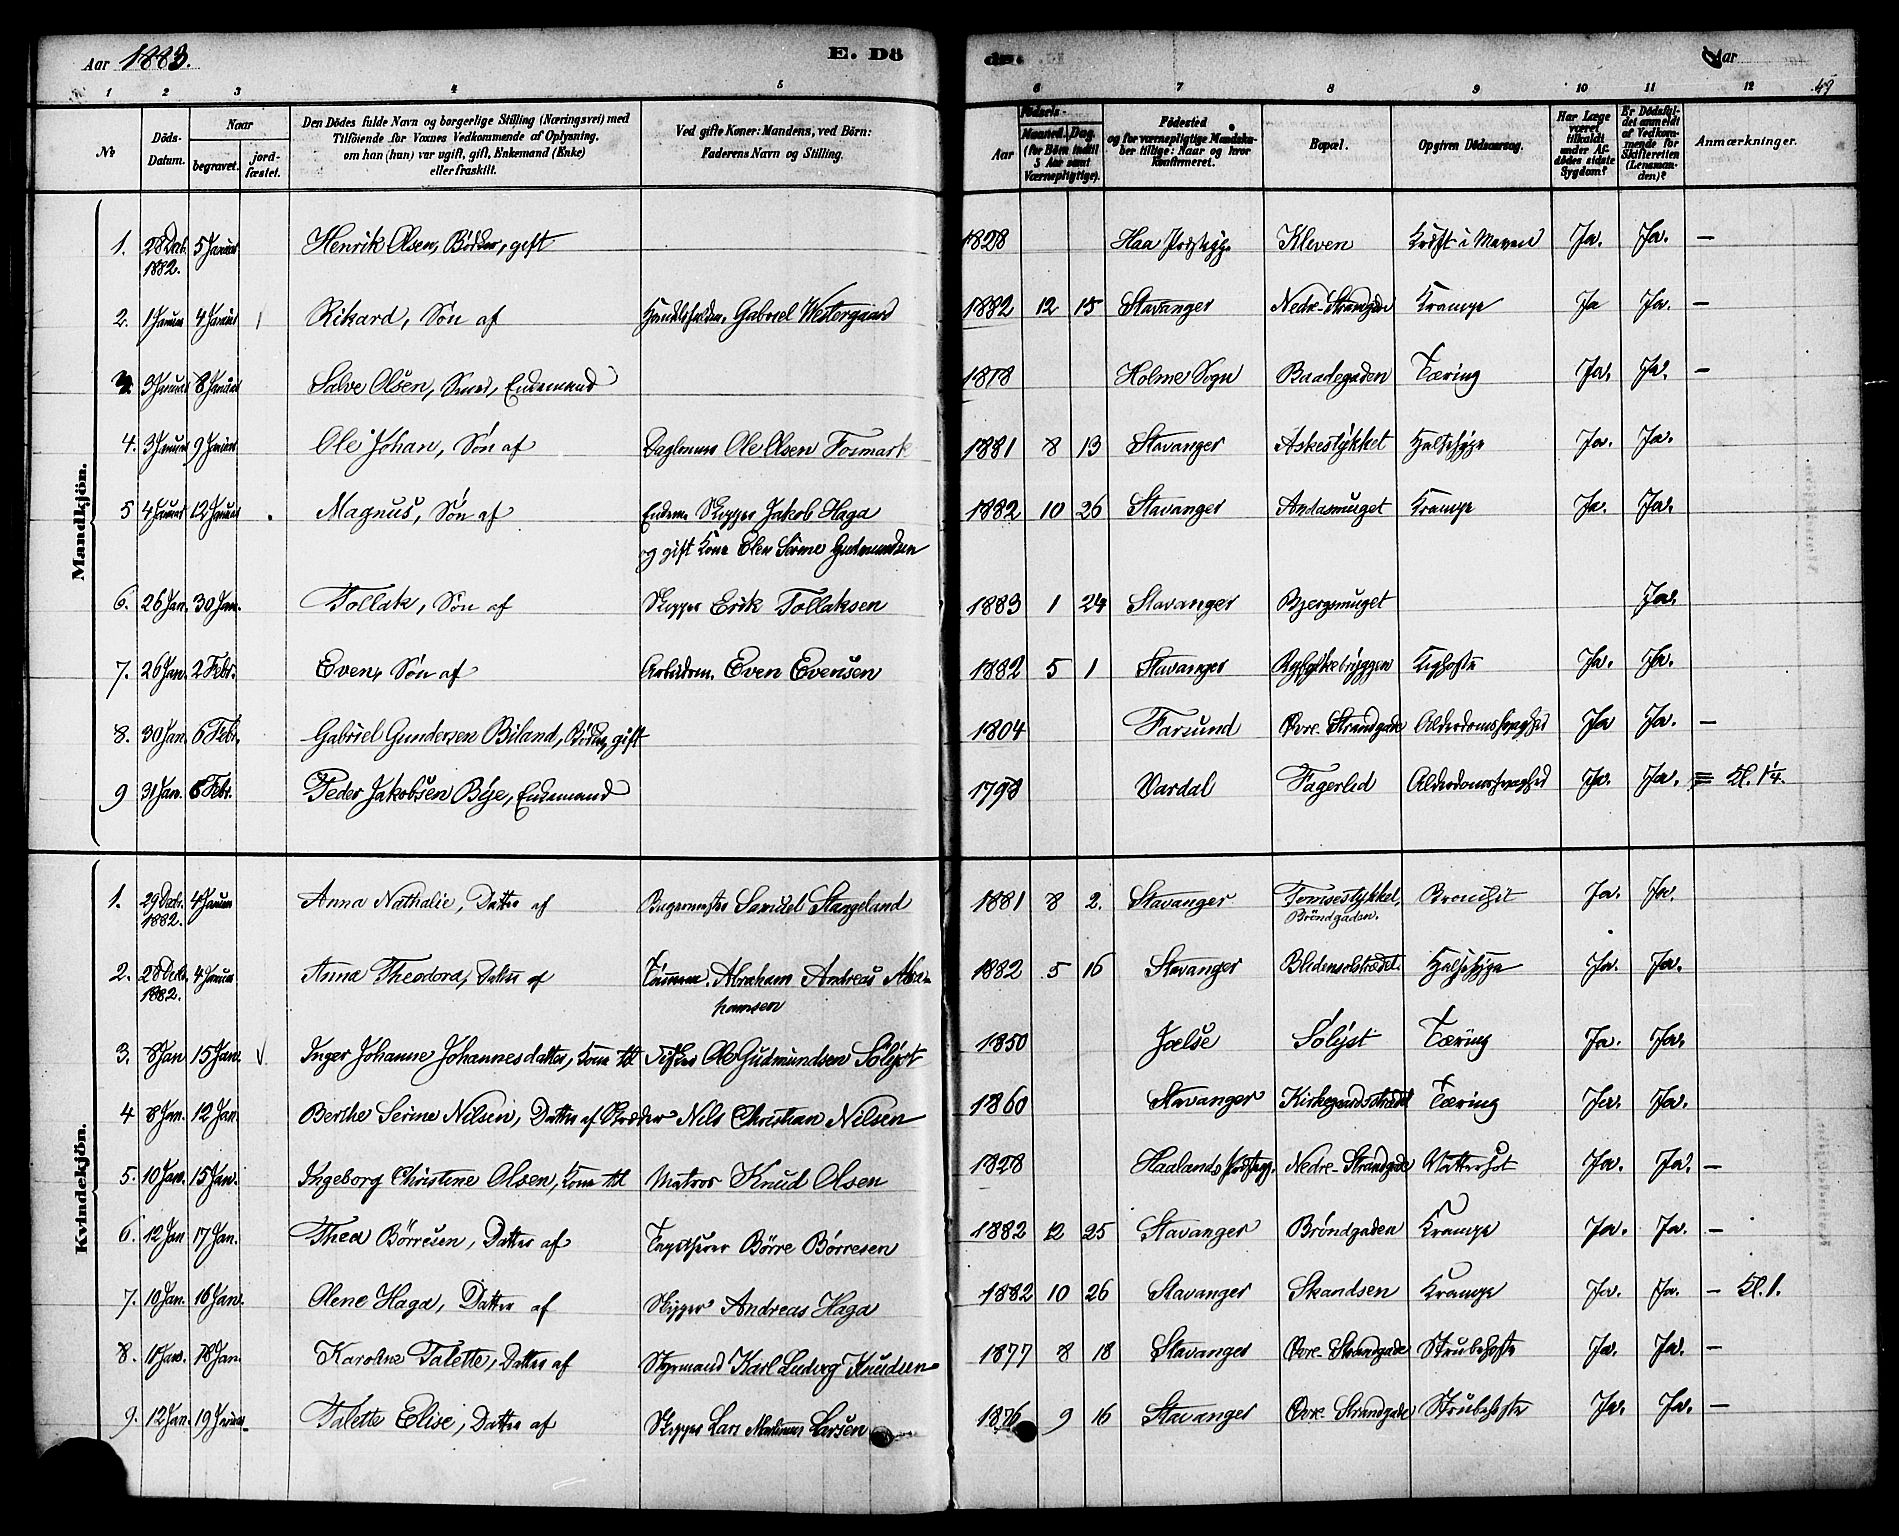 Aar 1883. E. Dö de. Aar
49
1 2 3 4 5 6 7 8 9 10 11 12
No
Döds-Datum.
Naar begravet. jordfæstet.
Den Dödes fulde Navn og borgerlige Stilling (Næringsvei) med Tilföiende for Voxnes Vedkommende af Oplysning, om han (hun) var ugift, gift, Enkemand (Enke) eller fraskilt.
Ved gifte Koner: Mandens, ved Börn: Faderens Navn og Stilling.
Födsels- Aar Maaned. Dag. (for Börn indtil 5 Aar samt Værnepligtige).
Födested og for værnepligtige Mandskaber tillige: Naar og hvor Konfirmeret.
Bopæl.
Opgiven Dödsaarsag.
Har Læge været tilkaldt under Afdödes sidste Sygdom?
Er Dödsfaldet anmeldt af Vedkommende for Skifteretten (Lensmanden)?
Anmærkninger.
Mandkjön.
1. 28 Decb. 1882. 5 Januar Henrik Olsen, Bödker, gift 1828 Haa Kleven Kræft i Maven Ja. Ja. —
2. 1 Januar 4 Januar Rikard, Søn af Gabriel Westergaard 1882 12 15 Stavanger Nedre-Strandgade Krampe Ja Ja. —
3. 3 Januar 8 Januar Salve Olsen, Smed, Enkemand 1818 Holme Sogn Baadegaden Tæring Ja. Ja. —
4. 3 Januar 9 Januar Ole Johan, Søn af Daglønner Ole Olsen Fosmark 1881 8 13 Stavanger Askestykket Halssyge Ja. Ja.
5 4 Januar 12 Januar Magnus, Søn af Enkem. Skipper Jakob Haga 1882 10 26 Stavanger Andasmuget Krampe Ja. Ja.
og gift Kone Olen Serine Gudmundsen
6. 26 Jan. 30 Jan. Tollak, Søn af Skipper Erik Tollaksen 1883 1 24 Stavanger Bjergsmuget Ja.
7. 26 Jan. 2 Febr. Even, Søn af Arbeidsm. Even Evensen 1882 5 1 Stavanger Ryfylkebryggen Kighoste Ja. Ja.
8. 30 Jan. 6 Febr. Gabriel Gundersen Biland, Bödker, gift 1804 Farsund Øvre-Strandgade Alderdomssvaghed Ja Ja. —
9 31 Jan. 8 Febr. Peder Jakobsen Bye, Enkemand 1798 Vardal Fagerlid Alderdomssvaghed Ja. Ja. Kl. 1¼.
Kvindekjön.
1. 29 Decb. 1882. 4 Januar Anna Nathalie, Datter af Bagermester Samuel Stangeland 1881 8 2. Stavanger Tomsestykket, Brøndgaden. Bronchit Ja. Ja.
2. 28 Decb. 1882. 4 Januar Anna Theodora, Datter af Tømmerm. Abraham Andreas Abrahamsen 1882 5 16 Stavanger Blidensolstrædet Halssyge Ja. Ja.
3. 8 Jan 15 Jan. Inger Johanne Johannesdatter, Kone til Fisker Ole Gudmundsen Sølyst 1850 Jælse Sølyst Tæring Ja. Ja.
4 8 Jan. 12 Jan. Berthe Serine Nilsen, Datter af Skrædder Nels Christian Nilsen 1860 Stavanger Kirkegaardsstrædet Tæring Ja. Ja.
5. 10 Jan. 15 Jan. Ingeborg Christine Olsen, Kone til Matros Knud Olsen 1828 Haalands Præstegj. Nedre-Strandgade Vattersot Ja. Ja. —
6. 12 Jan 17 Jan. Thea Børresen, Datter af Børre Børresen 1882 12 25 Stavanger Brøndgaden Krampe Ja. Ja. —
7. 10 Jan. 16 Jan. Olene Haga, Datter af Skipper Andreas Haga 1882 10 26 Stavanger Skandsen Krampe Ja. Ja. — Kl. 1.
8. 11 Jan. 18 Jan. Karoline Talette, Datter af Styrmand Karl Ludvig Knudsen 1877 8 18 Stavanger Øvre-Strandgade Strubehoste Ja. Ja. —
9. 12 Jan. 19 Januar Talette Elise, Datter af Skipper Lars Martinus Larsen 1876 9 16 Stavanger Øvre-Strandgade Strubehoste Ja. Ja. —